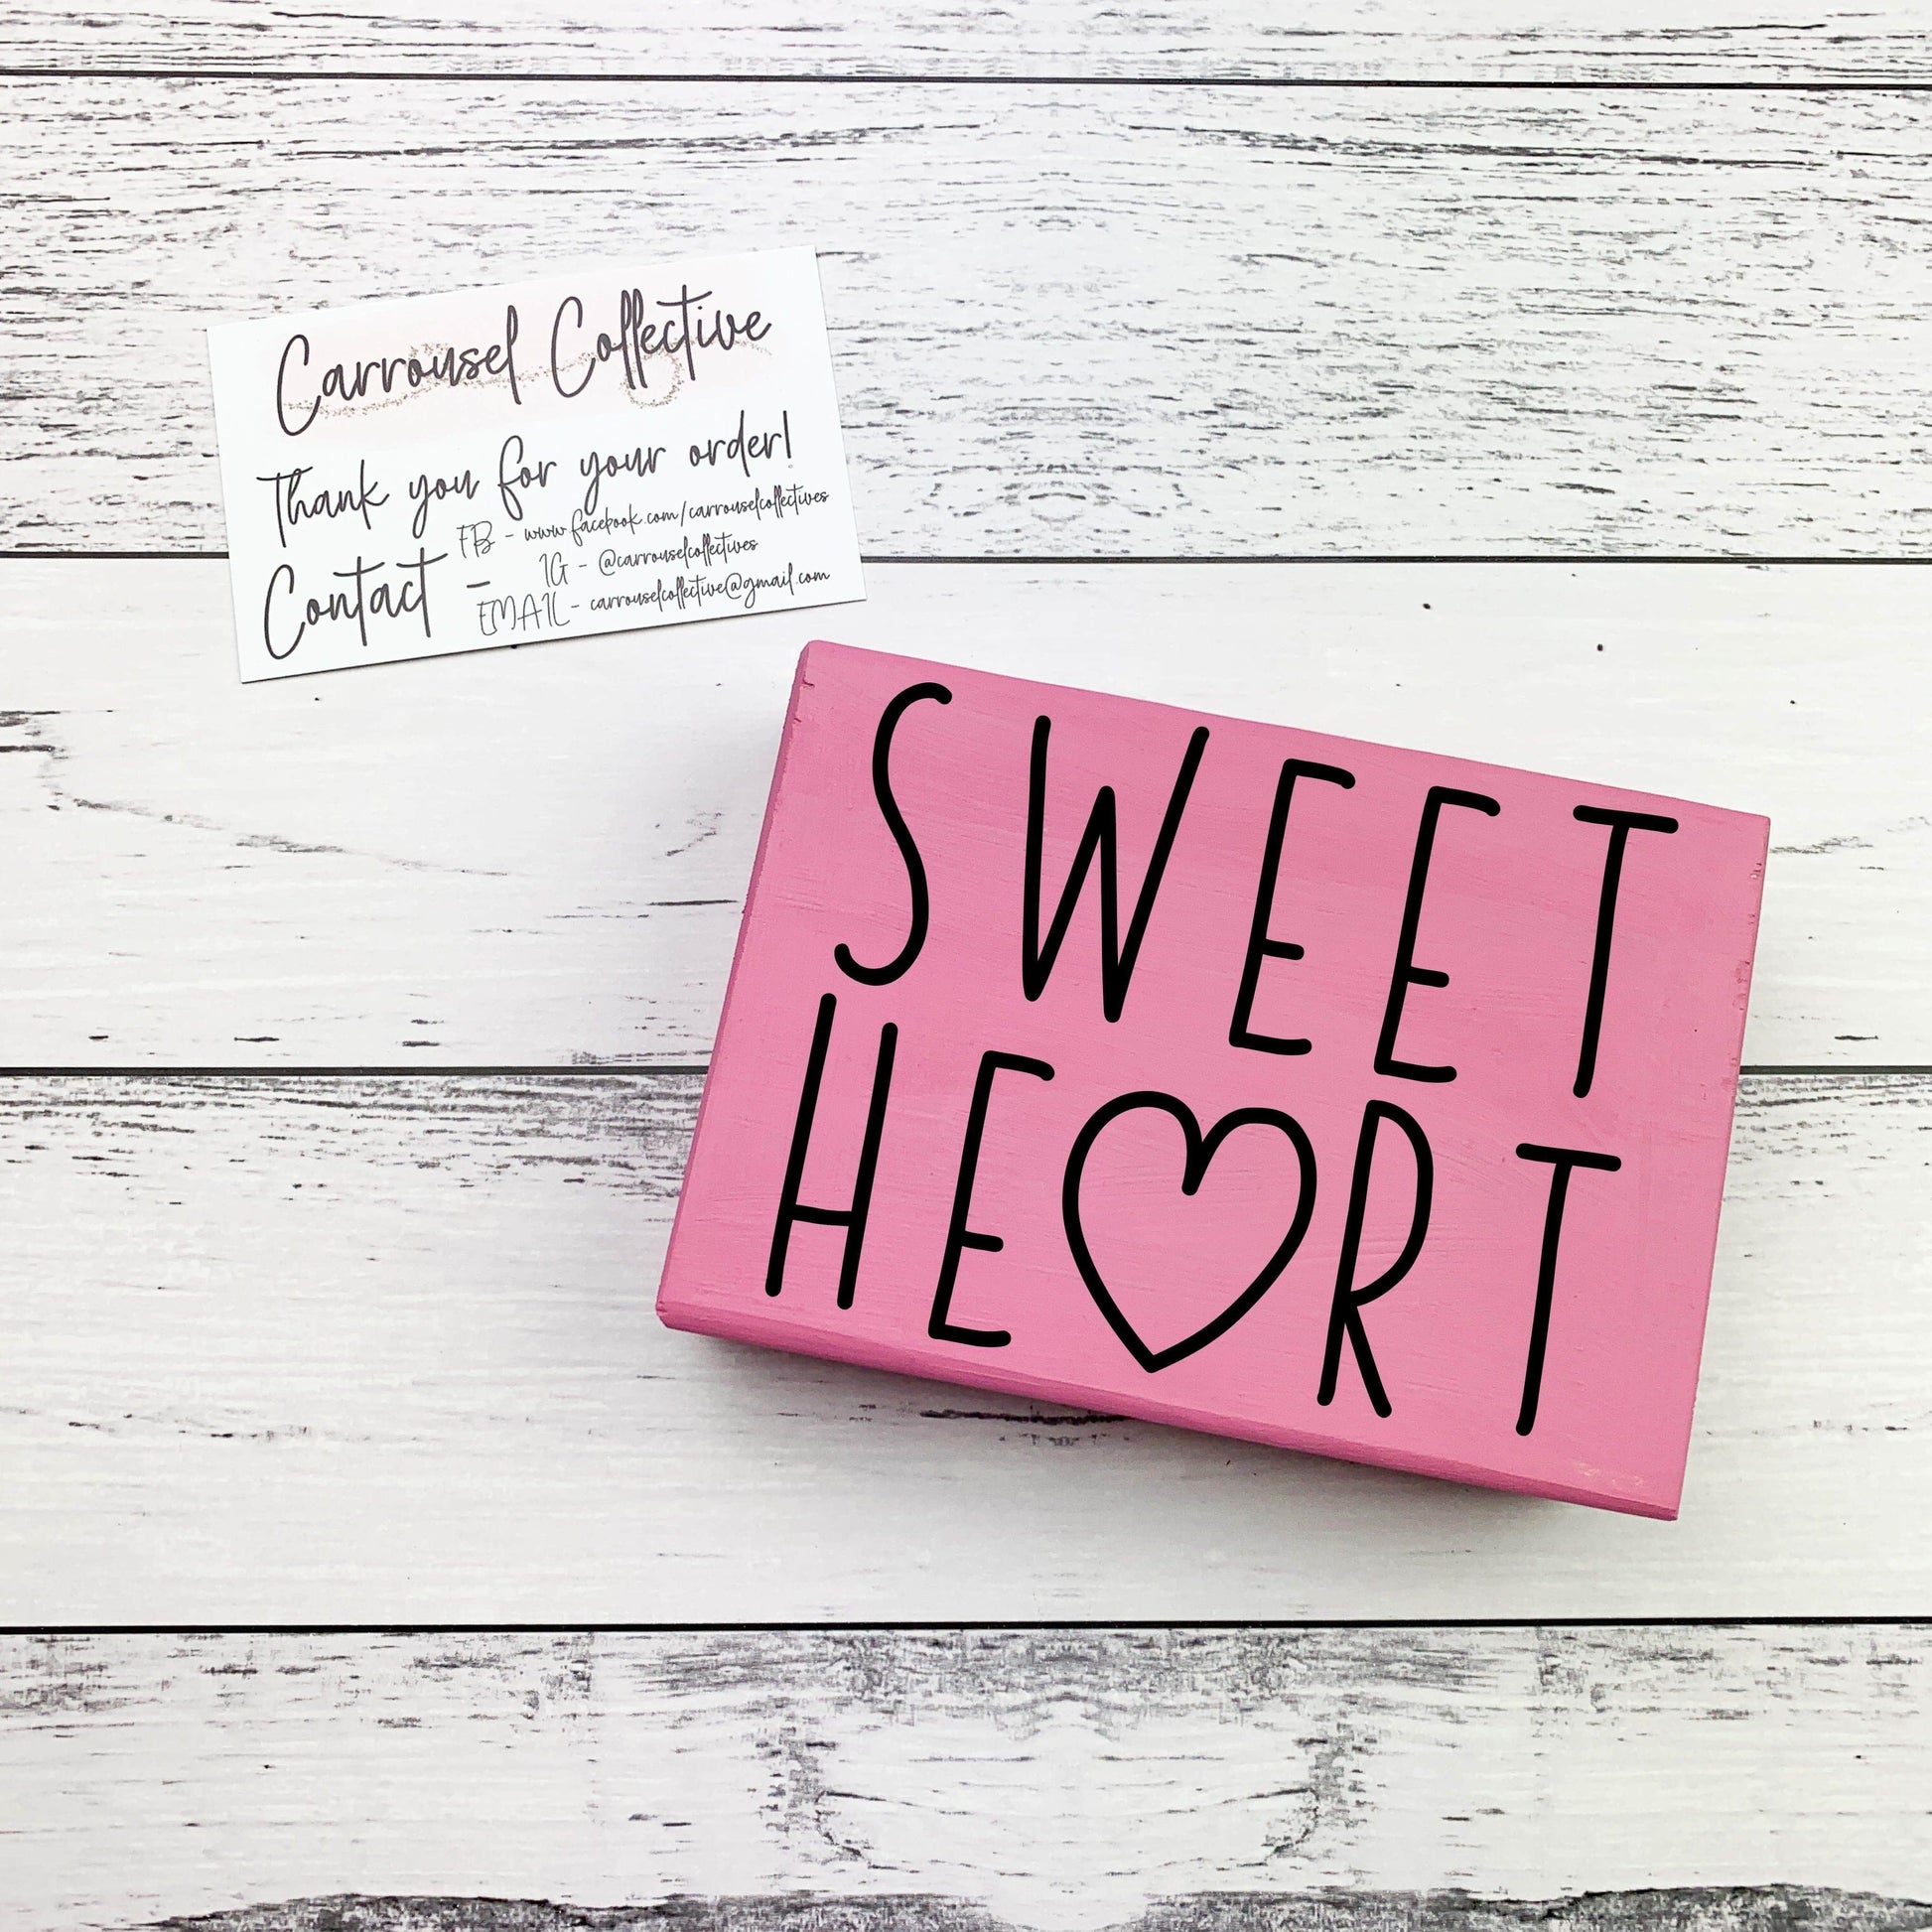 Carrousel Collective
Thank you for your order!
Contact -
FB - www.facebook.com/carrouselcollectives
IG - @carrouselcollectives
EMAIL - carrouselcollective@gmail.com
SWEET
HE♡RT